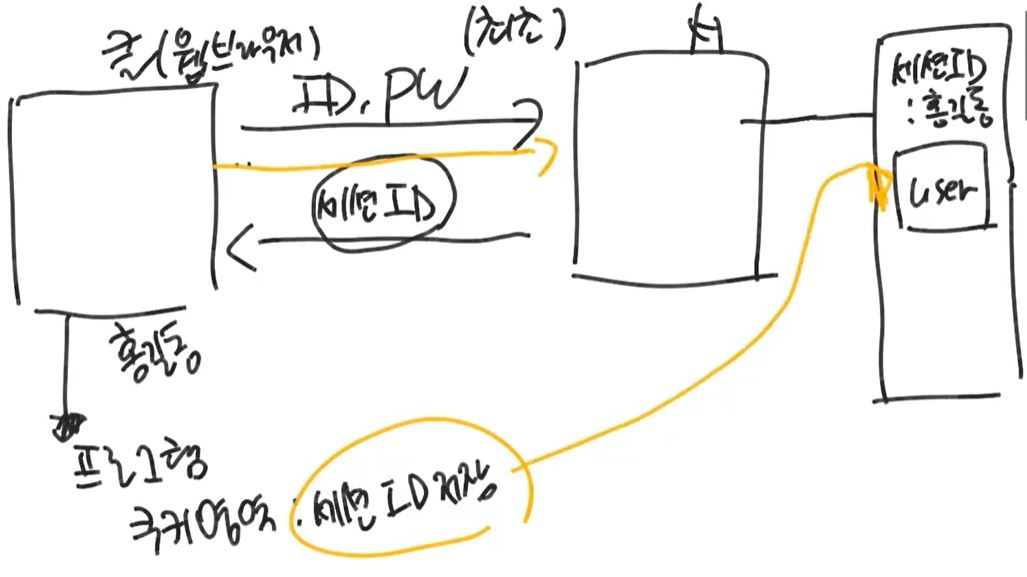 클라(웹브라우저)
(최초)
ID, PW
서
세션ID
: 홍길동
user
세션ID
홍길동
프로그램
쿠키영역 : 세션ID저장